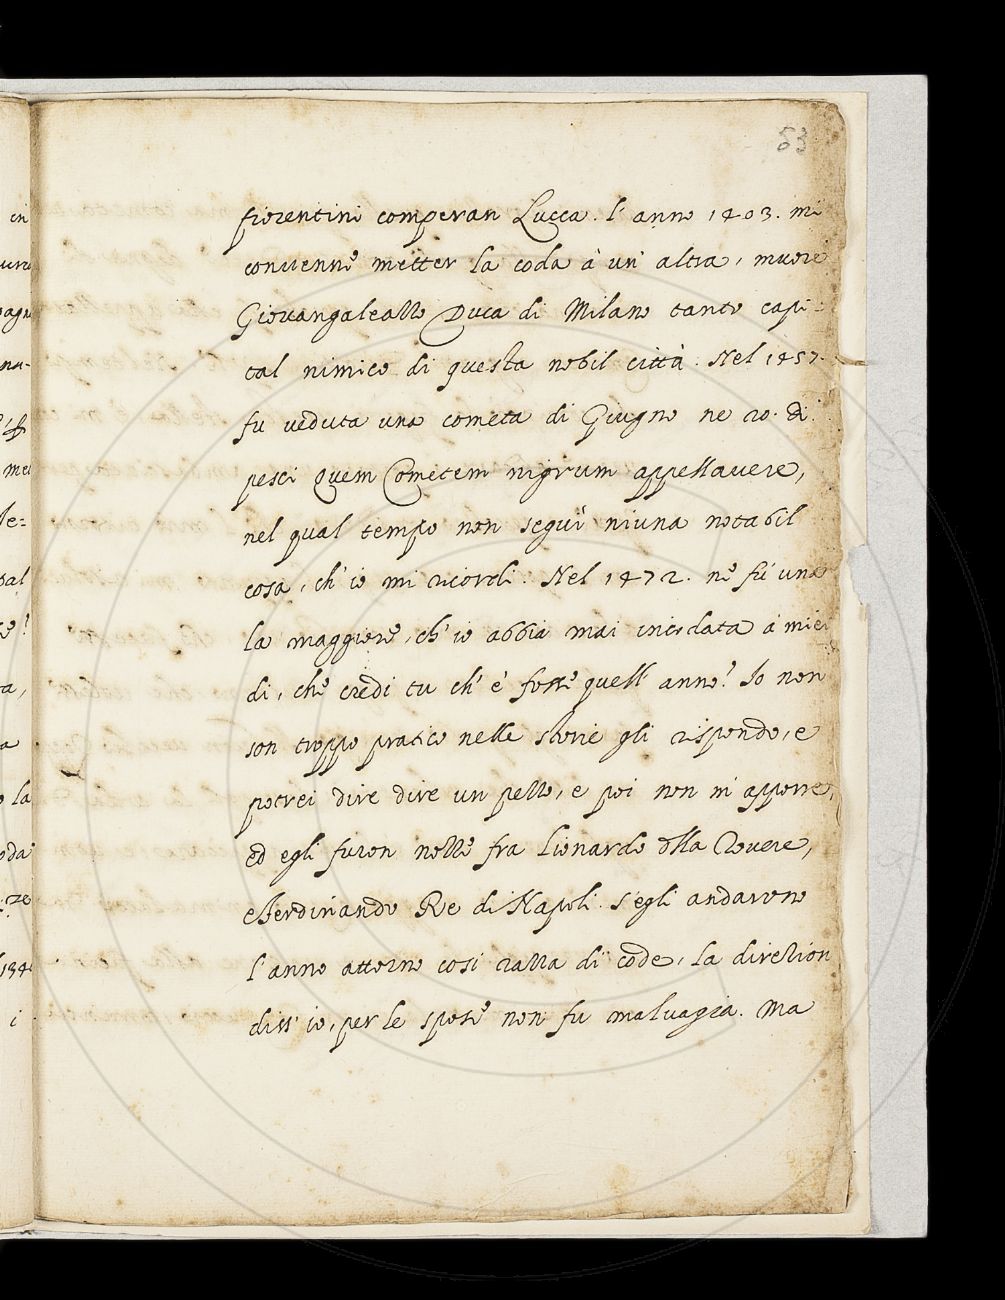 53
fiorentini comperan Lucca. l'anno 1403. mi
convenne metter la coda à un' altra, muore
Giovangaleazzo Duca di Milano tanto capi-
tal nimico di questa nobil città. Nel 1457.
fu veduta una cometa di Giugno ne 20. di
pesci quem Cometem nigrum appellavere,
nel qual tempo non seguì niuna notabil
cosa, ch'io mi ricordi. Nel 1472. ne fu una
la maggiore, ch'io abbia mai a miei
di, che credi tu ch'e' fosse quell' anno? Io non
son troppo pratico nelle storie gli rispondo, e
potrei dire dire un pezzo, e poi non m'apporre,
ed egli furon nozze fra Lionardo della Rovere,
e Ferdinando Re di Napoli. S'egli andarono
l'anno attorno cosi razza di code, la direzion
diss' io, per le spose non fu malvagia. Ma
cn
mei
le=
pal
a,
a
la
oda
re
134
i